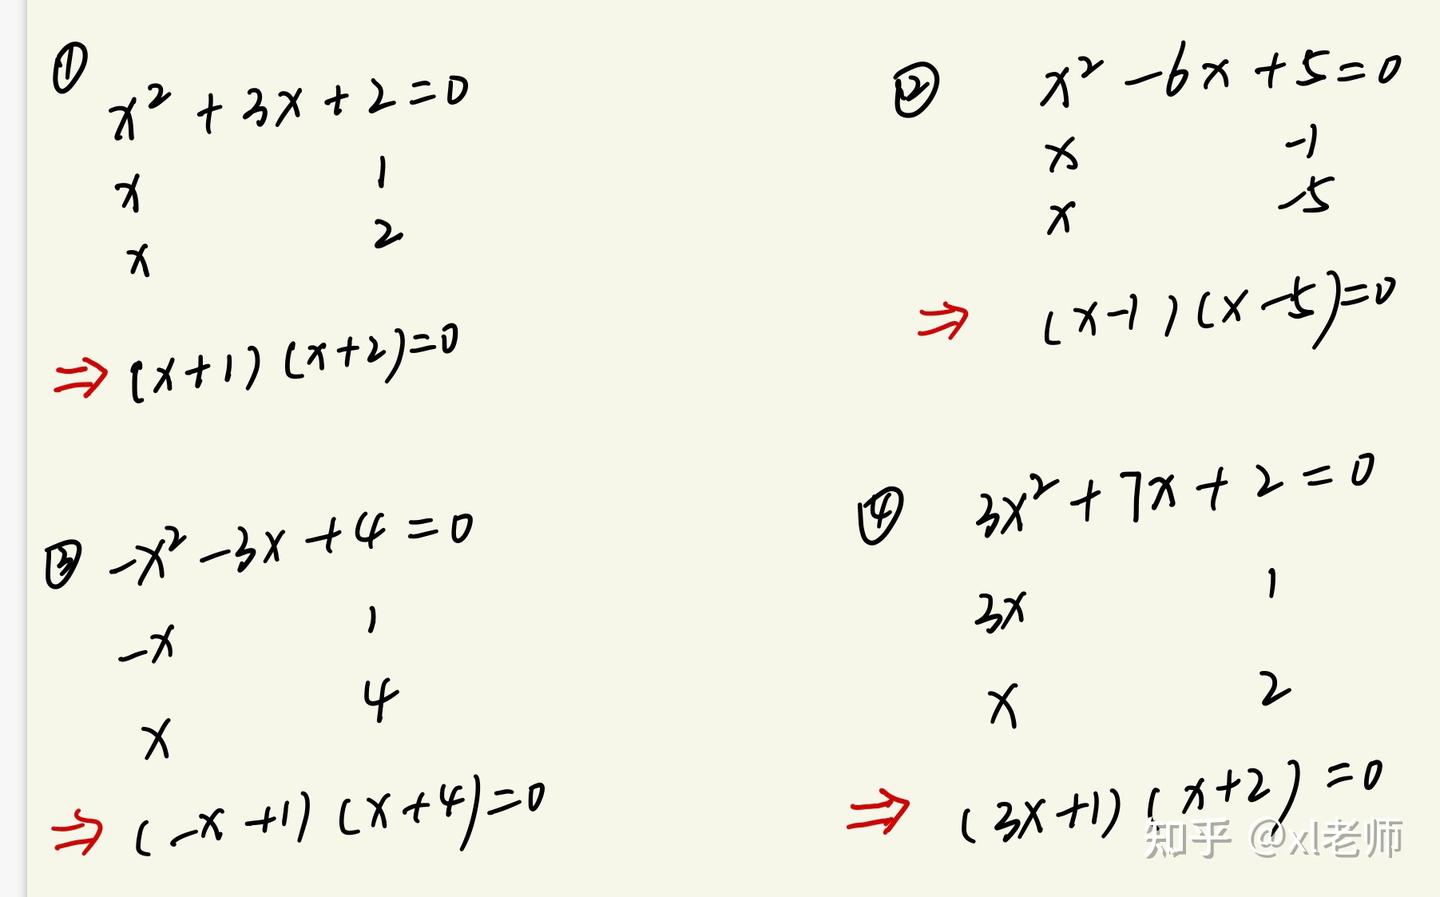 ① x² + 3x + 2 = 0
x 1
x 2
⇒ (x+1) (x+2)=0
② x² - 6x + 5 = 0
x -1
x -5
⇒ (x-1) (x-5)=0
③ -x² - 3x + 4 = 0
-x 1
x 4
⇒ (-x+1) (x+4)=0
④ 3x² + 7x + 2 = 0
3x 1
x 2
⇒ (3x+1) (x+2) =0
知乎 @xl老师